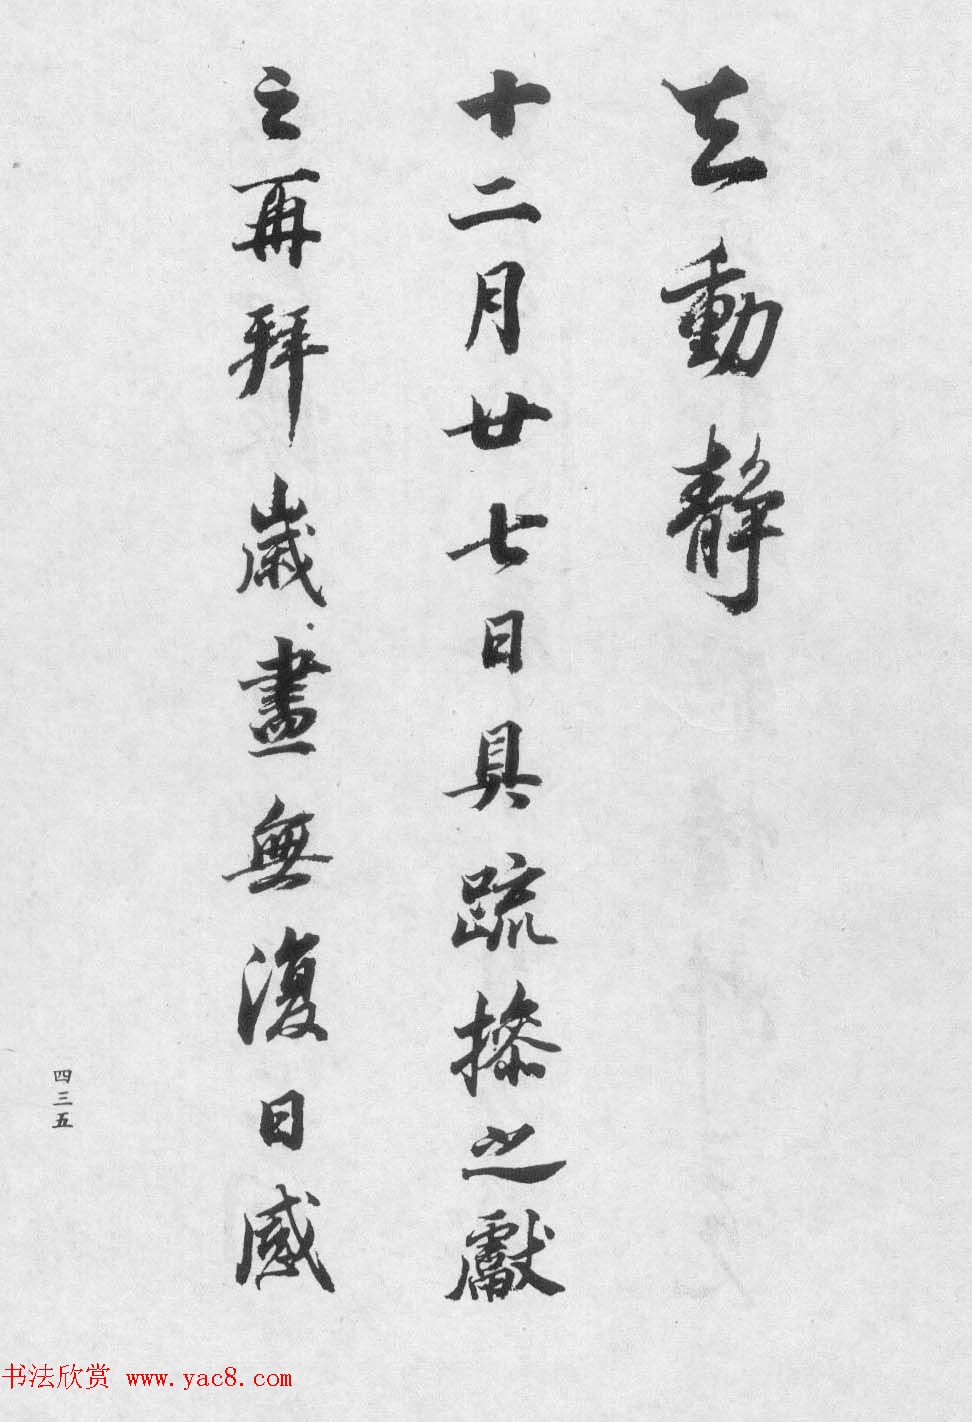 動靜
十二月廿七日具疏操之獻
之再拜歲盡無復日感
四三五
书法欣赏 www.yac8.com